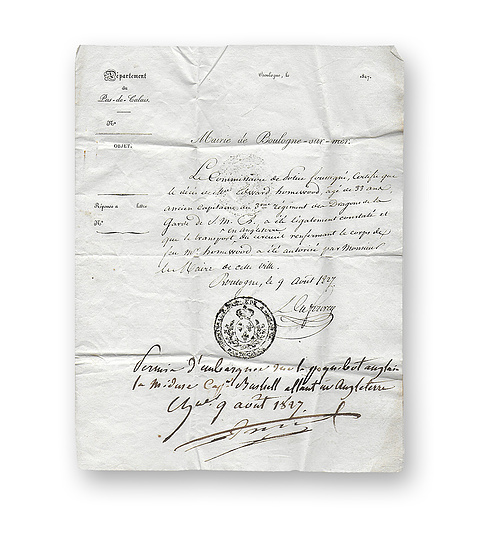 Département
du
Pas-de-Calais.
Boulogne, le 1827.
N°
OBJET.
Mairie de Boulogne-sur-mer.
Le Commissaire de Police soussigné, Certifie que
le décès de Mr. Edward homewood, agé de 33 ans
ancien Capitaine au 3eme régiment des Dragons de la
Réponse a lettre
Garde de S. M. B. a été légalement constaté et
N°
en Angleterre
que le transport du cercueil renfermant le corps de
feu Mr. homewood a été autorisé par Monsieur
le Maire de cette ville.
Boulogne, le 9 Août 1827.
Permis d'embarquer sur le paquebot anglais
la méduse Capne Bushell allant en Angleterre
9 août 1827.